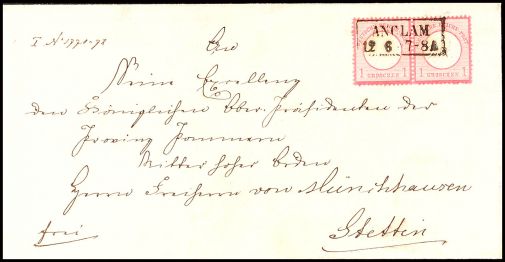 I No 1770-72
ANCLAM
12 6 7-8A
1 GROSCHEN 1
1 GROSCHEN 1
An
Seine Excellenz
den Königlichen Ober-Präsidenten der
Provinz Pommern
Ritter hoher Orden
Herrn Freiherrn von Münchhausen
Stettin
frei